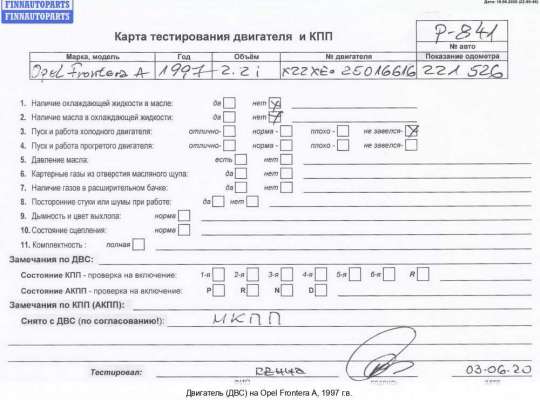 FINNAUTOPARTS
FINNAUTOPARTS
Карта тестирования двигателя и КПП
P-841
№ авто
Марка, модель Год Объём № двигателя Показание одометра
Opel Frontera A 1997 2.2i X22XE 25016616 221 526
1. Наличие охлаждающей жидкости в масле: да нет
2. Наличие масла в охлаждающей жидкости: да нет
3. Пуск и работа холодного двигателя: отлично- норма - плохо - не завелся-
4. Пуск и работа прогретого двигателя: отлично- норма - плохо - не завелся-
5. Давление масла: есть нет
6. Картерные газы из отверстия масляного щупа: да нет
7. Наличие газов в расширительном бачке: да нет
8. Посторонние стуки или шумы при работе: да нет
9. Дымность и цвет выхлопа: норма
10. Состояние сцепления: норма
11. Комплектность : полная
Замечания по ДВС:
Состояние КПП - проверка на включение: 1-я 2-я 3-я 4-я 5-я 6-я R
Состояние АКПП - проверка на включение: P R N D
Замечания по КПП (АКПП):
Снято с ДВС (по согласованию!): МКПП
Тестировал: 03-06-20
Двигатель (ДВС) на Opel Frontera A, 1997 г.в.